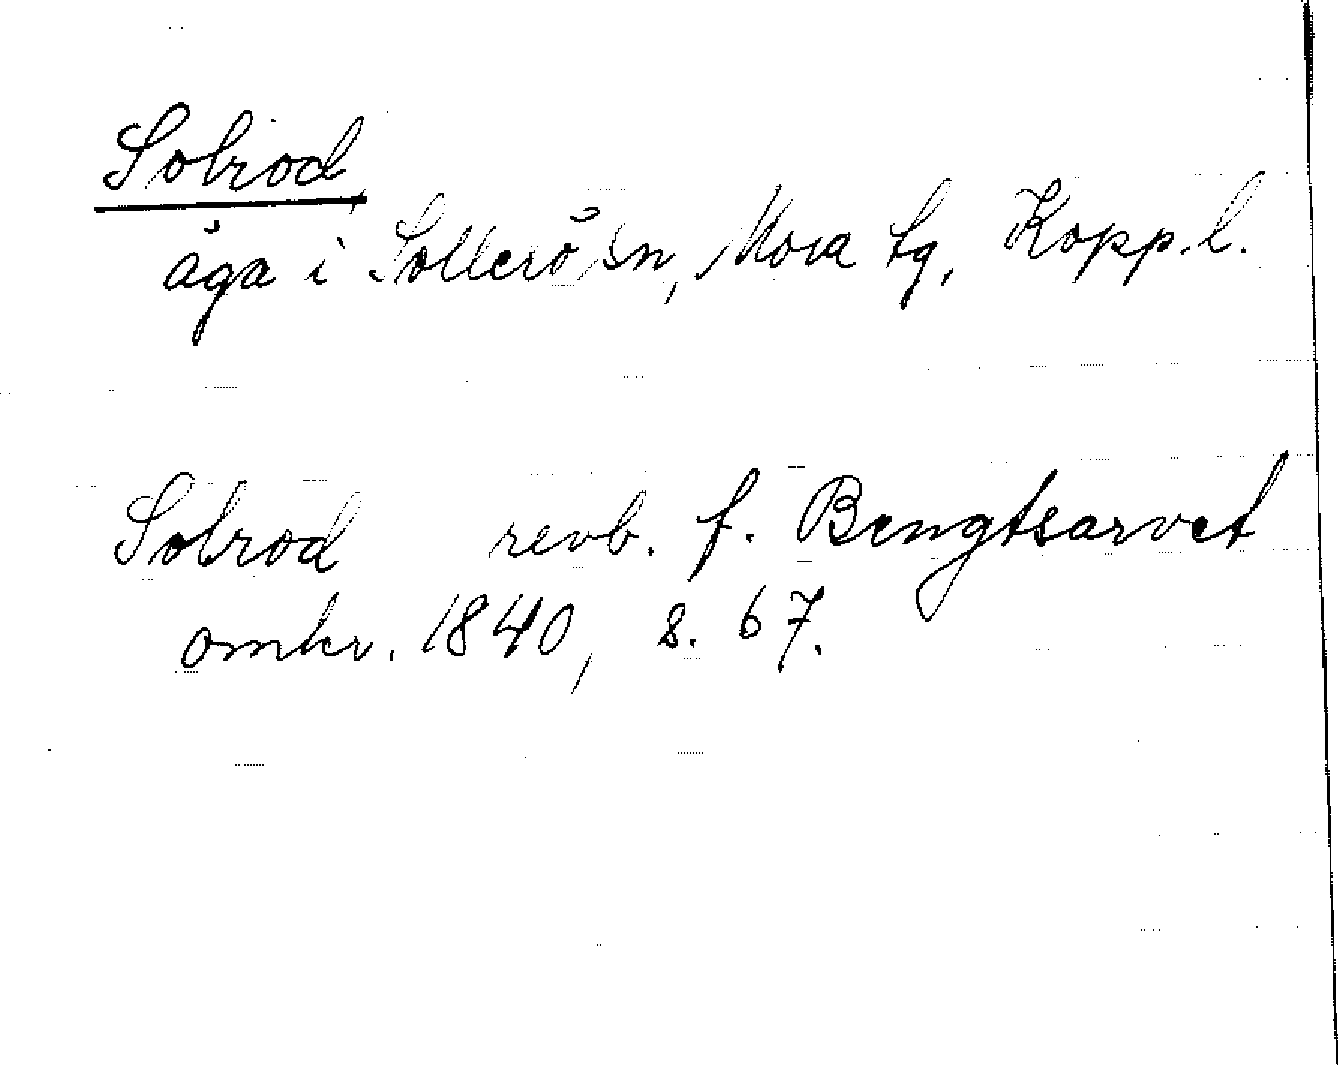 Solrod
åga i Sollerö sn, Mora tg, Koppl.
Solrod revb. f. Bengtsarvet
omkr. 1840, s. 67.